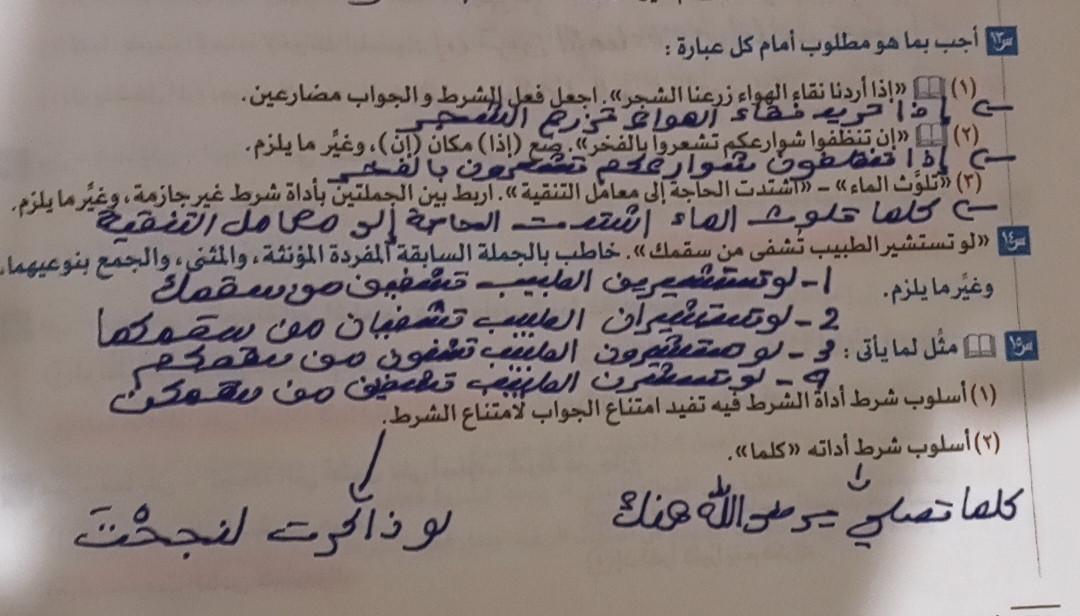 س١٣ أجب بما هو مطلوب أمام كل عبارة :
(١) «إذا أردنا نقاء الهواء زرعنا الشجر». اجعل فعل الشرط والجواب مضارعين.
إذا نريد نقاء الهواء نزرع الشجر
(٢) «إن تنظفوا شوارعكم تشعروا بالفخر». ضع (إذا) مكان (إن)، وغيِّر ما يلزم.
إذا تنظفون شوارعكم تشعرون بالفخر
(٣) «تلوَّث الماء» – «اشتدت الحاجة إلى معامل التنقية». اربط بين الجملتين بأداة شرط غير جازمة، وغيِّر ما يلزم.
كلما تلوث الماء اشتدت الحاجة إلو معامل التنقية
س١٤ «لو تستشير الطبيب تشفى من سقمك». خاطب بالجملة السابقة المفردة المؤنثة، والمثنى، والجمع بنوعيهما،
وغيِّر ما يلزم.
1- لو تستشيرين الطبيب تشفين من سقمك
2- لو تستشيران الطبيب تشفيان من سقمكما
3- لو الطبيب تشفون من سقمكم
4- لو تستشرن الطبيب تشفين من سقمكن
س١٥ مثِّل لما يأتى :
(١) أسلوب شرط أداة الشرط فيه تفيد امتناع الجواب لامتناع الشرط.
(٢) أسلوب شرط أداته «كلما».
كلما تصلي يرضى الله عنك
لو ذاكرت لنجحْتَ